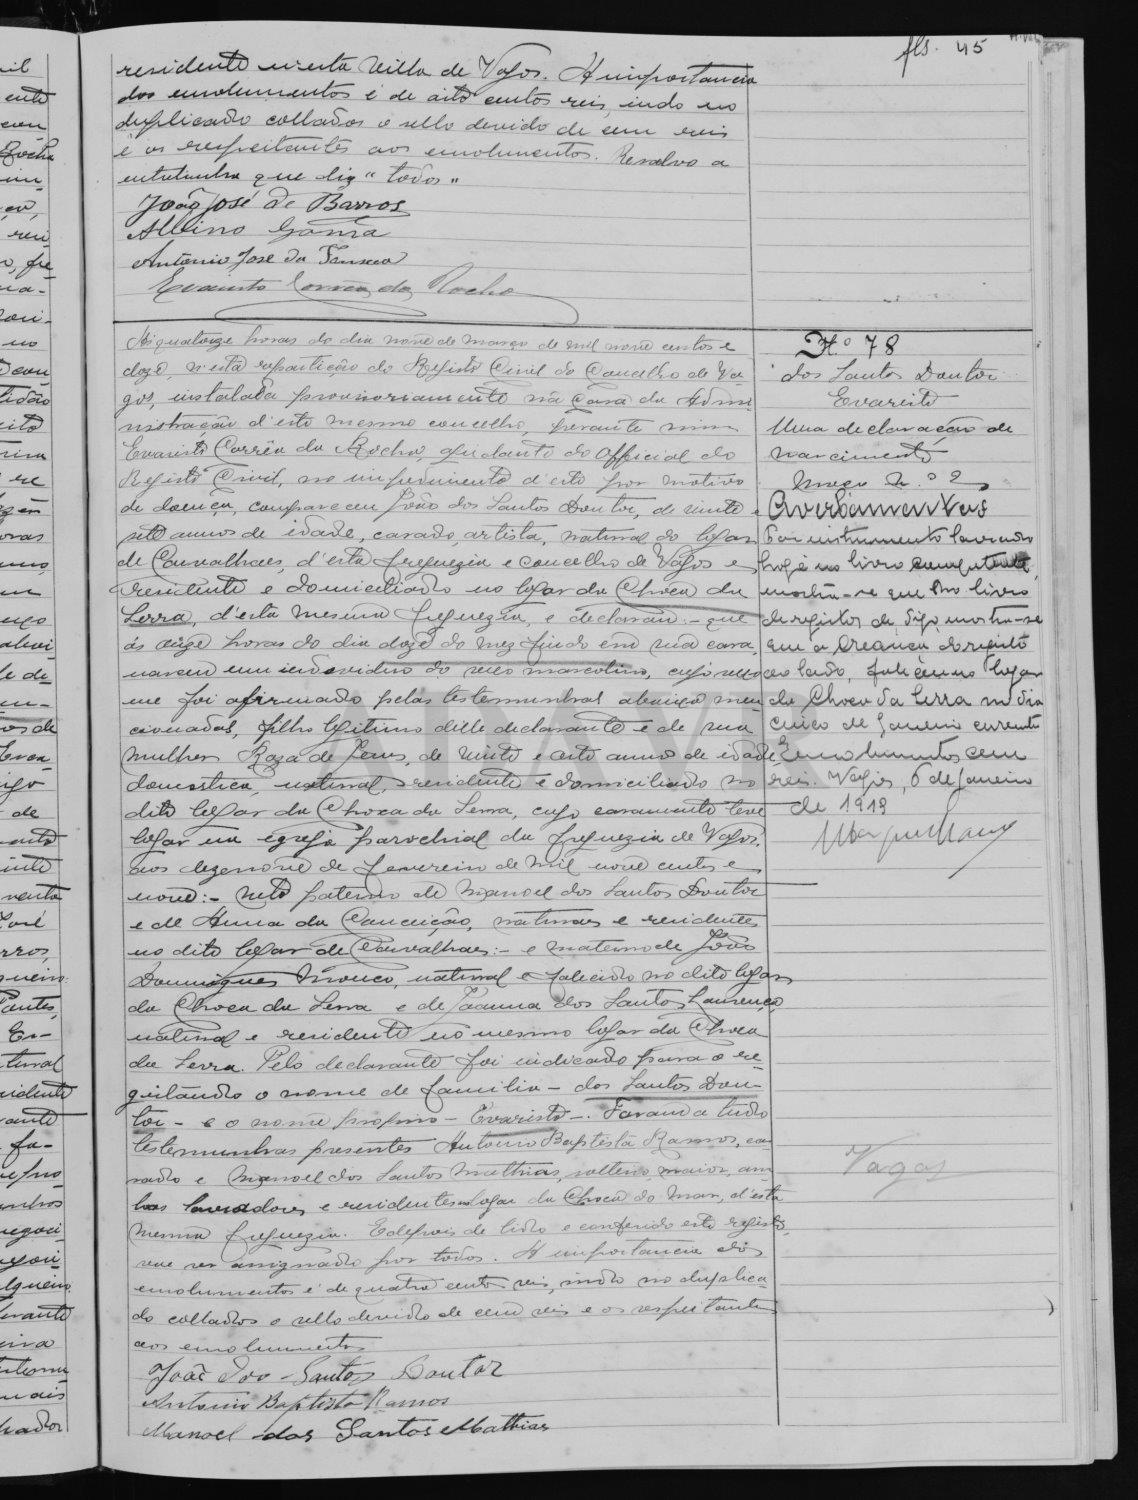 fls. 45
residente n'esta Villa de Vagos. A importancia
dos emolumentos é de oito centos reis, indo no
duplicado collados o sello devido de cem reis
e os respeitantes aos emolumentos. Resalvo a
entrelinha que diz "todos"
João José de Barros
Albino Gama
Antonio Jose da Fonseca
Evaristo Correa da Rocha
Ás quatorze horas do dia nove de março de mil nove centos e
doze, n'esta repartição do Registo Civil do Concelho de Va-
gos, installada provisoriamente na Casa da Admi-
nistração d'este mesmo concelho, perante mim
Evaristo Corrêa da Rocha, ajudante do Official do
Registo Civil, no impedimento d'este por motivo
de doença, compareceu João dos Santos Doutor, de vinte e
sete annos de idade, casado, artista, natural do logar
de Carvalhaes, d'esta freguezia e concelho de Vagos e
residente e domiciliado no logar da Choca da
Serra, d'esta mesma freguezia, e declarou:- que
ás onze horas do dia doze do mez findo em sua casa
nasceu um individuo do sexo masculino, cujo sexo
me foi afirmado pelas testemunhas abaixo men-
cionadas, filho legitimo delle declarante e de sua
mulher Roza de Jesus, de vinte e oito annos de idade,
domestica, natural, residente e domiciliada no
dito logar da Choca da Serra, cujo casamento teve
logar na egreja parochial da freguezia de Vagos,
aos dezenove de Fevereiro de mil nove centos e
nove:- neto paterno de Manoel dos Santos Doutor
e de Anna da Conceição, naturaes e residentes
no dito logar de Carvalhaes:- e materno de João
Domingues Mouco, natural e falecido no dito logar
da Choca da Serra e de Joanna dos Santos Lourenço,
natural e residente no mesmo logar da Choca
da Serra. Pelo declarante foi indicado para o re-
gistando o nome de familia - dos Santos Dou-
tor - e o nome proprio - Evaristo -. Foram a tudo
testemunhas presentes Antonio Baptista Ramos, ca-
sado e Manoel dos Santos Mathias, solteiro, maior, am-
bos lavradores e residentes no logar da Choca do Mar, d'esta
mesma freguezia. E depois de lido e conferido este registo,
vae ser assignado por todos. A importancia dos
emolumentos é de quatro centos reis, indo no duplica-
do collados o sello devido de cem reis e os respeitantes
aos emolumentos
João dos Santos Doutor
Antonio Baptista Ramos
Manoel dos Santos Mathias
N.º 78
dos Santos Doutor
Evaristo
Uma declaração de
nascimento
Maço N.º 2
Averbamentos
Por instrumento lavrado
hoje no livro competente,
mostra-se que no livro
de registos de, digo, mostra-se
que a creança do registo
ao lado, faleceu no logar
da Choca da Serra no dia
cinco de Janeiro corrente
Emolumentos cem
reis. Vagos, 6 de Janeiro
de 1913
Vagos